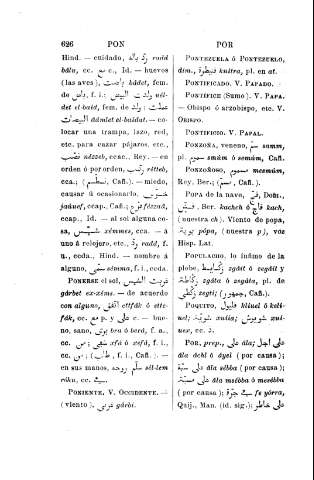 626 PON POR
Hind. — cuidado, رد بالـ redd
bálu, cc. مع e., Id. — huevos
(las aves), باضت bádet, fem.
de باض, f. i.; ولدت البيض uél-
det el-baid, fem. de ولد; f. em:
البيضات dámlet el-baidat. — co-
locar una trampa, lazo, red,
etc. para cazar pájaros, etc.,
نصب násseb, ccaa., Rey. — en
orden ó por orden, رتب rétteb,
cca., Cañ. — miedo,
causar ú ocasionarlo,
jaúuef, ccap., Cañ.; فزع fézzaâ,
ccap., Id. — al sol alguna co-
sa, شمّس xémmes, cca. — á
uno á relojero, etc., رد redd, f.
u., ccda., Hind. — nombre á
alguno, سمى sémma, f. i., ccda.
PONERSE el sol, غربت الشمس
gárbet ex-xéms. — de acuerdo
con alguno, اتفق ettfák ó ette-
fák, cc. مع p. y على c. — bue-
no, sano, برى bra ó berá, f. a.,
cc. من; شفى xfá ó xefá, f. i.,
cc. من; (طاب, f. i., Cañ.). —
en sus manos, سلم روحه sél-lem
róhu, cc. فى.
PONIENTE, V. OCCIDENTE. —
(viento), غربى gárbi.
PONTEZUELA ó PONTEZUELO,
dim., قنيطرة kuitra, pl. en at.
PONTIFICADO, V. PAPADO.
PONTÍFICE (Sumo). V. PAPA.
— Obispo ó arzobispo, etc. V.
OBISPO.
PONTIFICIO. V. PAPAL.
PONZOÑA, veneno, سم semm,
pl. سموم smúm ó semúm, Cañ.
PONZOÑOSO, مسموم mesmúm,
Rey. Ber.; (سم, Cañ.).
POPA de la nave, Dom.,
فيش, Ber. kacheh ó كاچ kach,
(nuestra ch). Viento de popa,
بوپة púpa (nuestra p), voz
Hisp. Lat.
POPULACHO, lo ínfimo de la
plebe, زغايط zgáit ó zegáit y
زگاطة zgáta ó zegáta, pl. de
زگطى zegti; (جمهور, Cañ.).
POQUITO, قليول klíuel ó kalí-
uel; شوية xuiia; شويوش xuí-
uex, cc. د.
POR, prep., على âla; على اجل
âla áchl ó áyel (por causa);
على سبّة âla sébba (por causa);
على مسبّة âla msébba ó mesébba
(por causa); فى جرة fe yórra,
Quij., Man. (id. sig.); على خاطر